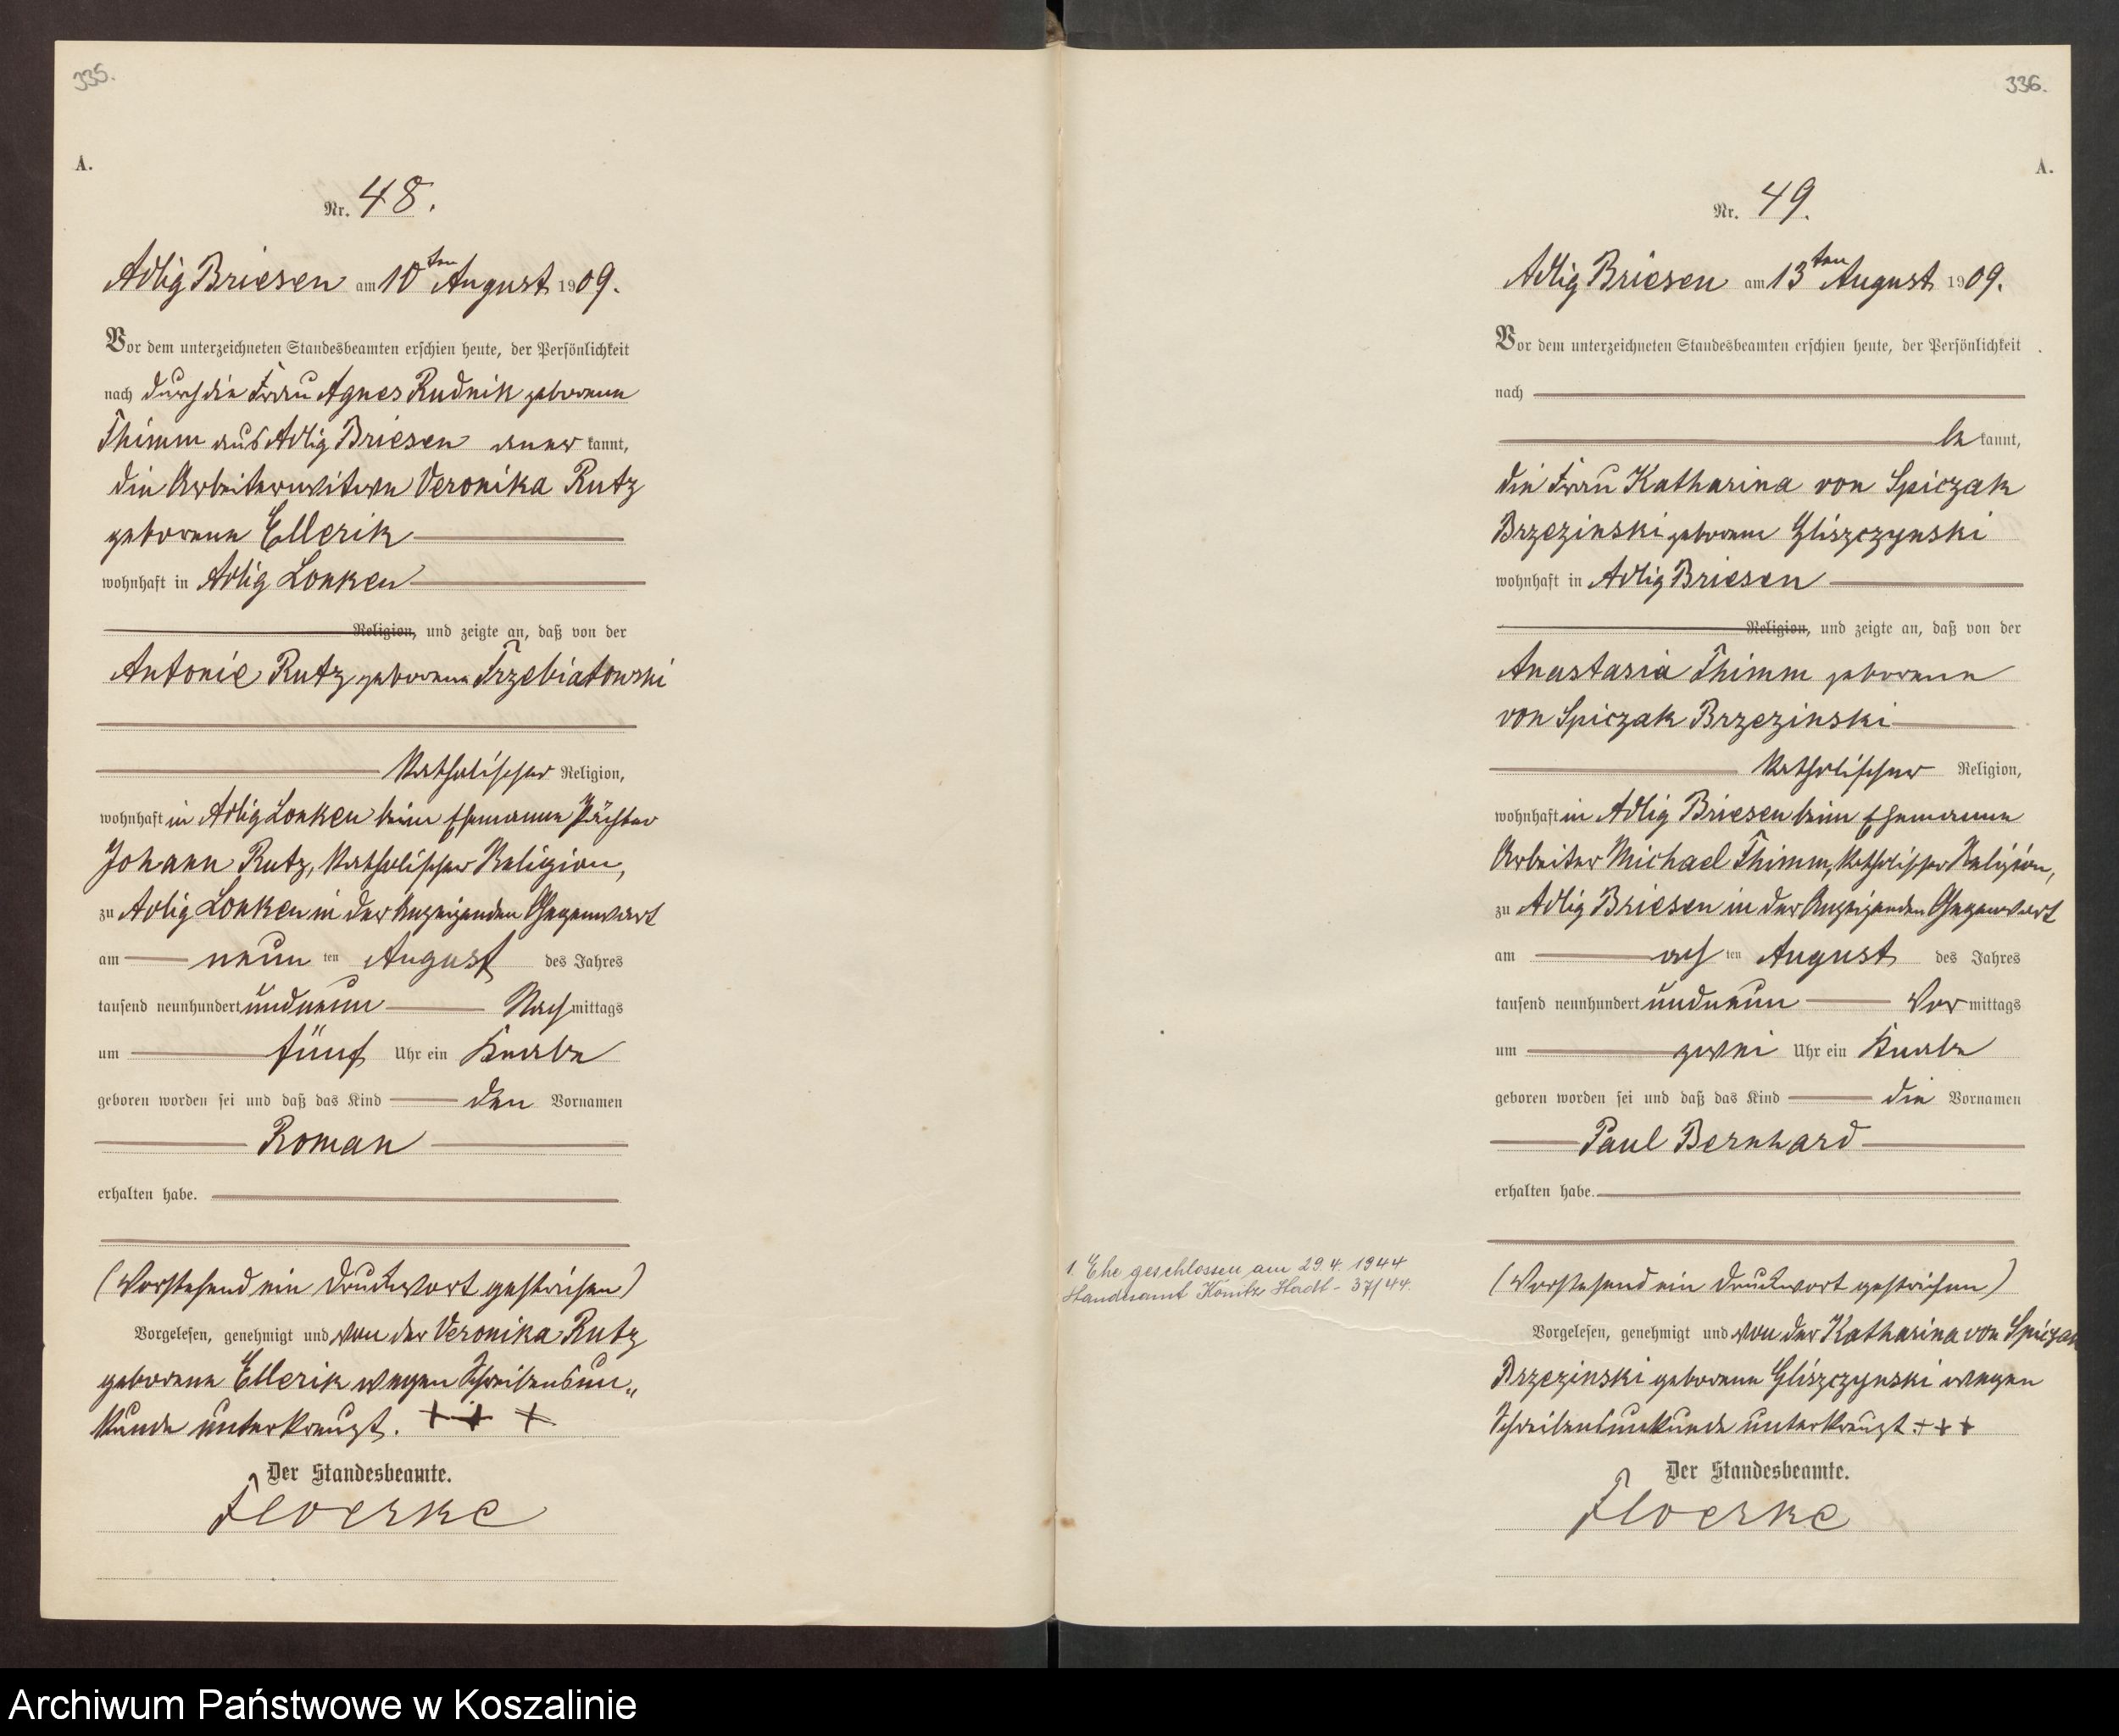 335.
A.
Nr. 48.
Adlig Briesen am 10ten August 1909.
Vor dem unterzeichneten Standesbeamten erschien heute, der Persönlichkeit
nach durch die Frau Agnes Rudnik geborene
Thimm aus Adlig Briesen anerkannt,
die Arbeiterwitwe Veronika Rutz
geborene Ellerik
wohnhaft in Adlig Lonken
Religion, und zeigte an, daß von der
Antonie Rutz geborene Trzebiatowski
Katholischer Religion,
wohnhaft in Adlig Lonken beim Ehemanne Pächter
Johann Rutz, Katholischer Religion,
zu Adlig Lonken in der Anzeigenden Gegenwart
am neunten August des Jahres
tausend neunhundert und neun Nachmittags
um fünf Uhr ein Knabe
geboren worden sei und daß das Kind den Vornamen
Roman
erhalten habe.
(Vorstehend ein Druckwort gestrichen)
Vorgelesen, genehmigt und von der Veronika Rutz
geborene Ellerik wegen Schreibensun„
kunde unterkreuzt. + + +
Der Standesbeamte.
Floerke
336.
A.
Nr. 49.
Adlig Briesen am 13ten August 1909.
Vor dem unterzeichneten Standesbeamten erschien heute, der Persönlichkeit
nach
bekannt,
die Frau Katharina von Spiczak
Brzezinski geborene Gliszczynski
wohnhaft in Adlig Briesen
Religion, und zeigte an, daß von der
Anastasia Thimm geborene
von Spiczak Brzezinski
Katholischer Religion,
wohnhaft in Adlig Briesen beim Ehemanne
Arbeiter Michael Thimm, Katholischer Religion,
zu Adlig Briesen in der Anzeigenden Gegenwart
am achten August des Jahres
tausend neunhundert und neun Vormittags
um zwei Uhr ein Knabe
geboren worden sei und daß das Kind die Vornamen
Paul Bernhard
erhalten habe.
1. Ehe geschlossen am 29.4.1944
Standesamt Konitz Stadt - 37/44.
(Vorstehend ein Druckwort gestrichen)
Vorgelesen, genehmigt und von der Katharina von Spiczak
Brzezinski geborene Gliszczynski wegen
Schreibensunkunde unterkreuzt. + + +
Der Standesbeamte.
Floerke
Archiwum Państwowe w Koszalinie